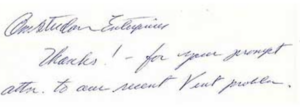 Amsterdam Enterprises
Thanks! - for your prompt
attn. to our recent Vent problem.